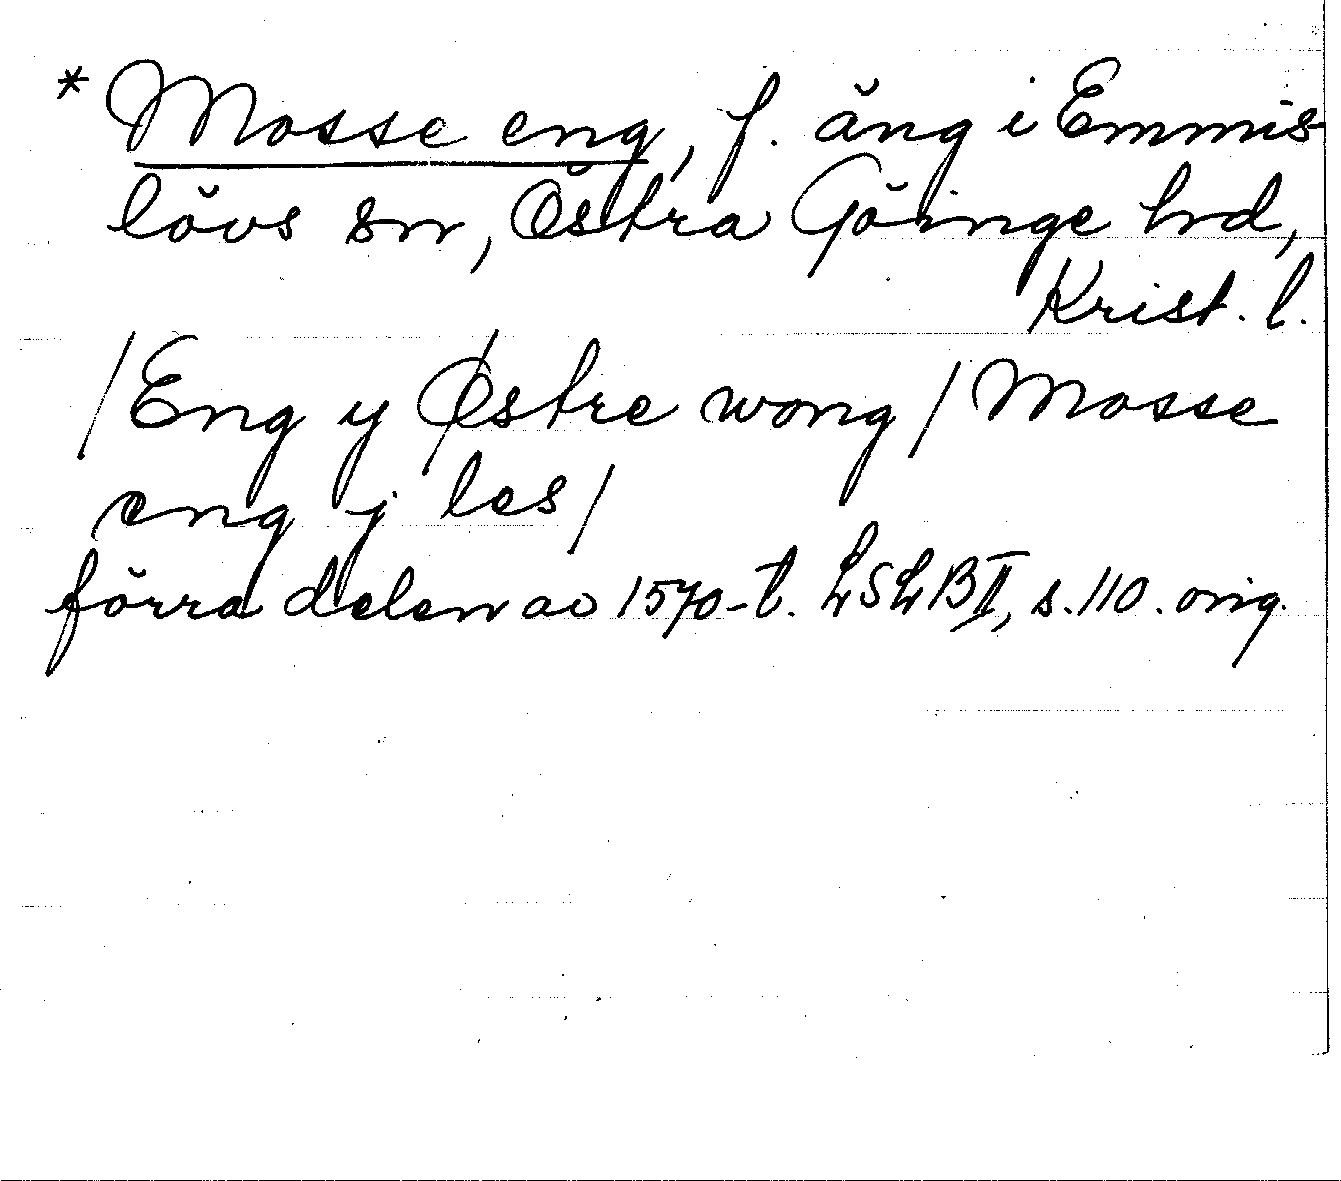 * Mosse eng, f. äng i Emmis-
lövs sn, Östra Göinge hd,
Krist. l.
/Eng y Østre wong/ Mosse
eng j les/
förra delen av 1570-t. LSLB II, s. 110. orig.